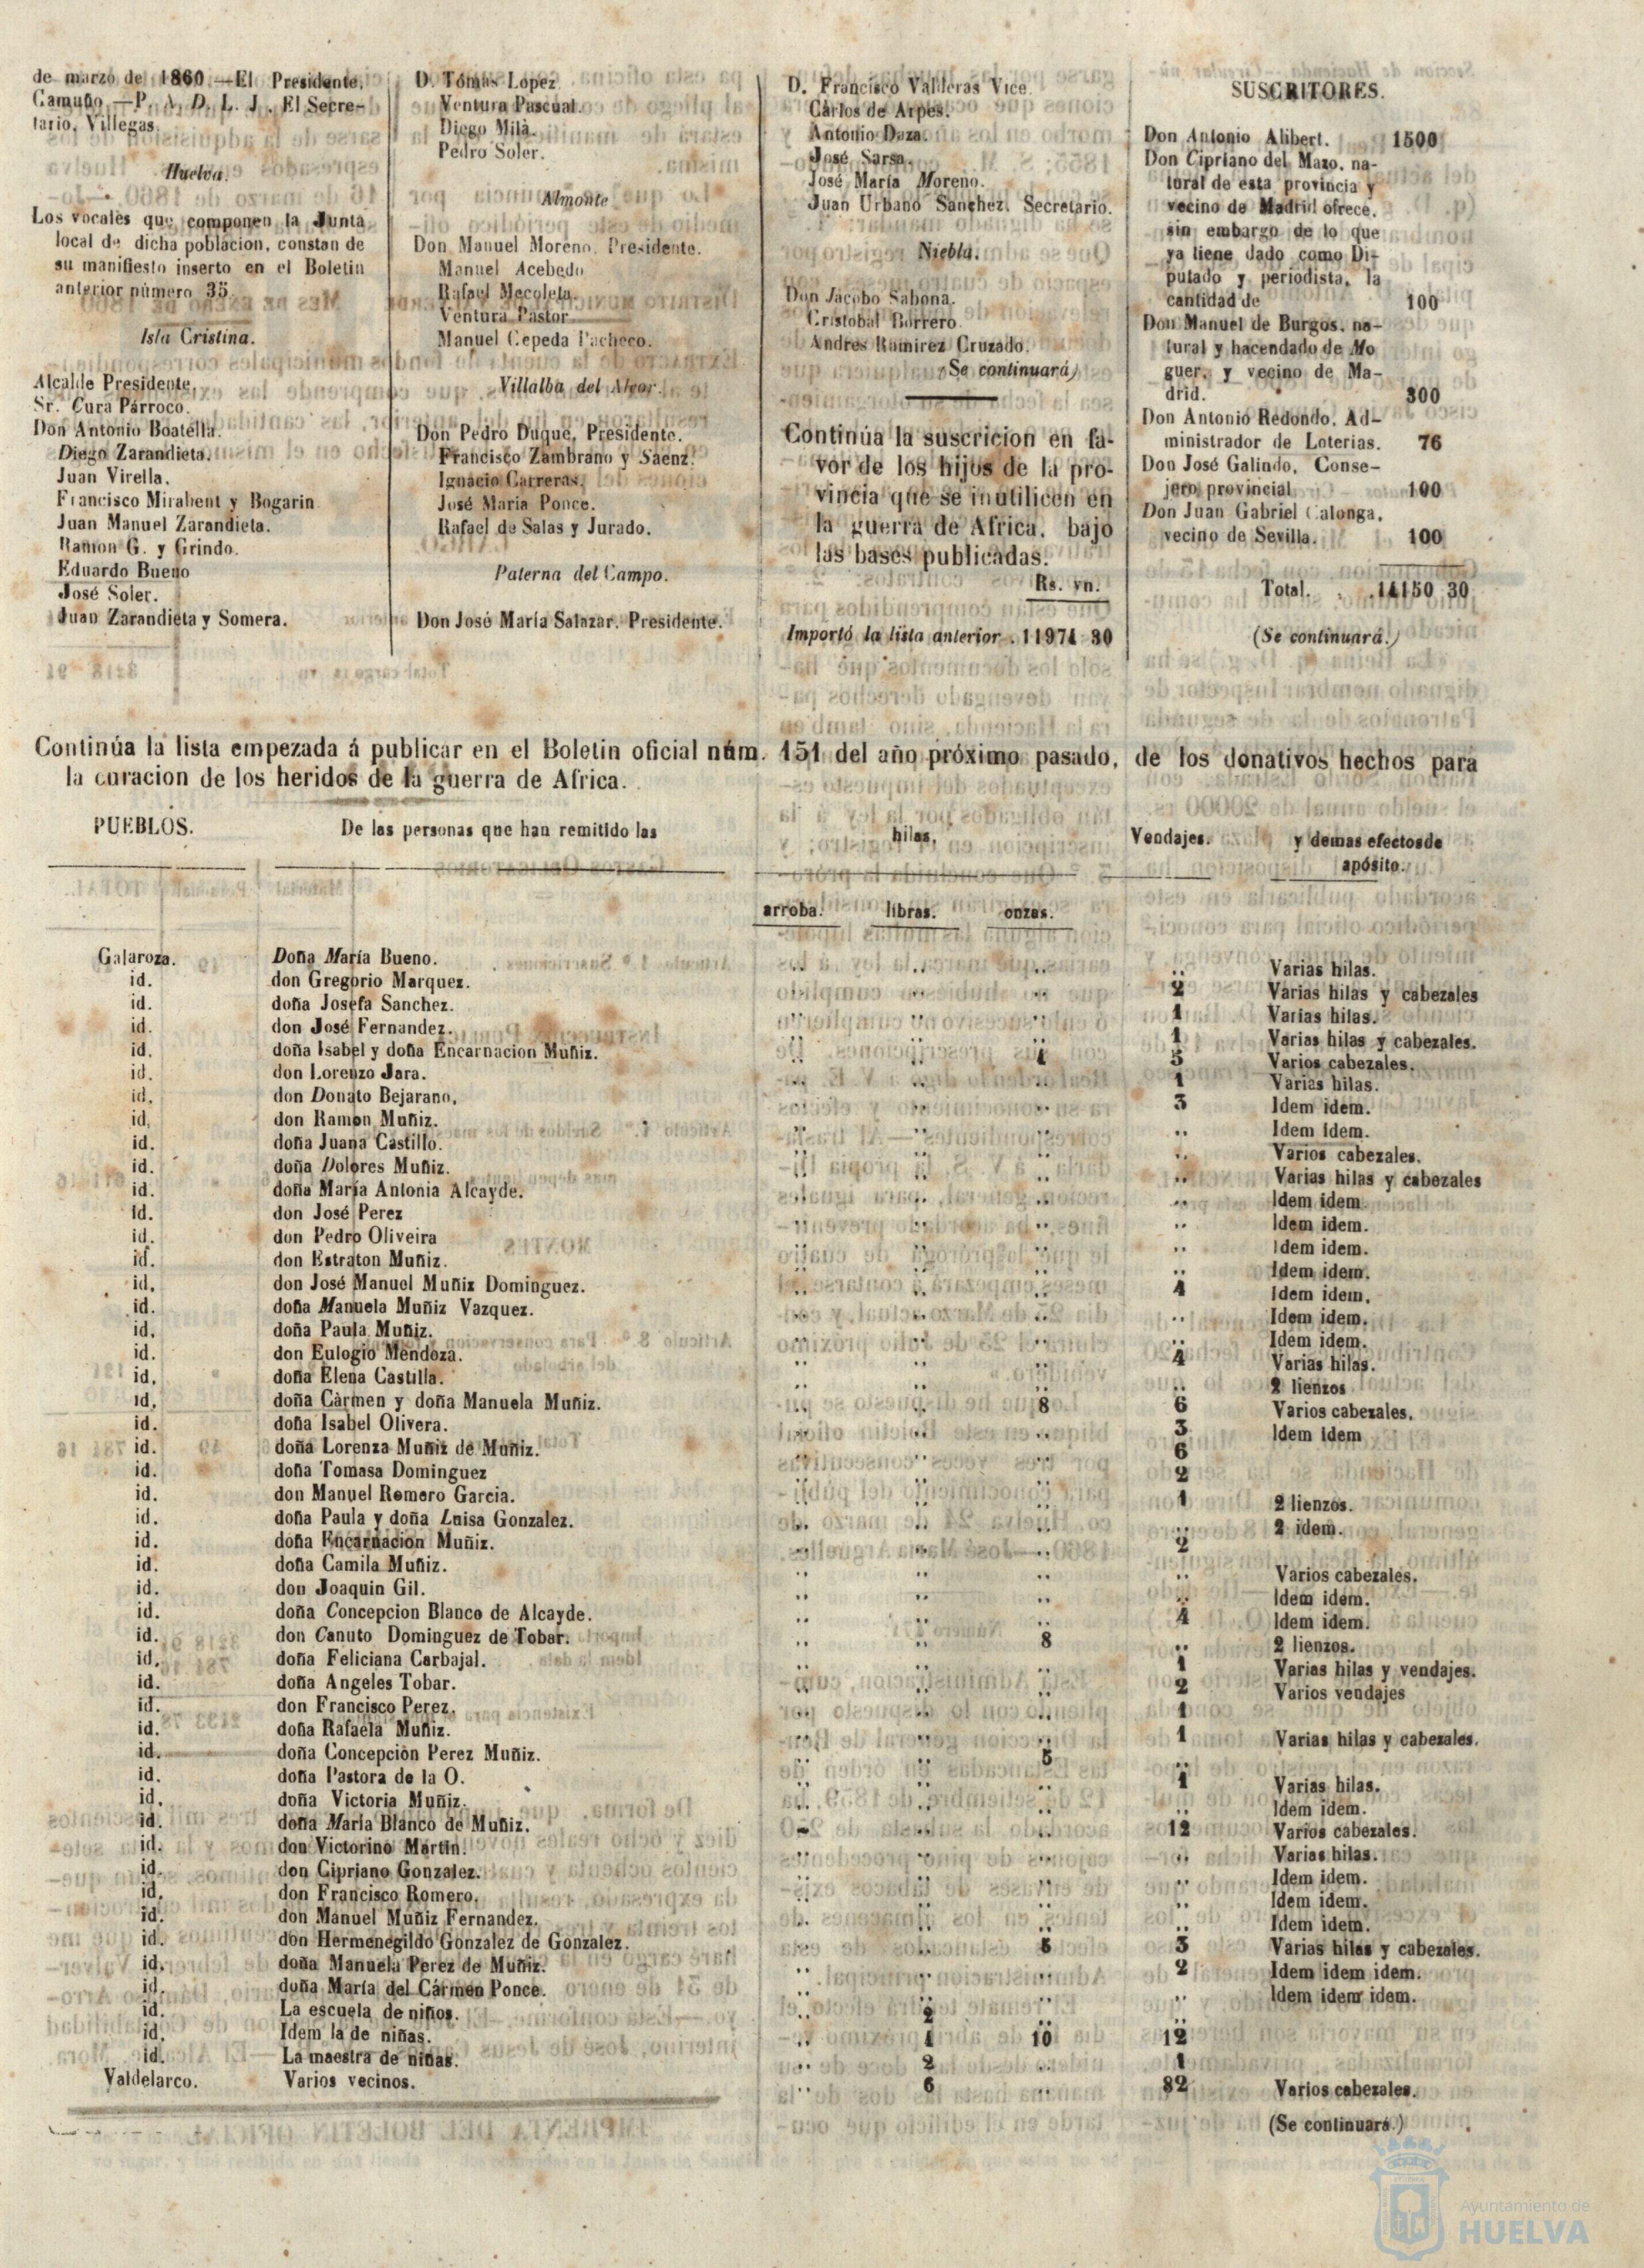 de marzo de 1860.—El Presidente,
Camuño.—P. A. D. L. J. El Secre-
tario, Villegas.
Huelva.
Los vocales que componen la Junta
local de dicha poblacion, constan de
su manifiesto inserto en el Boletin
anterior número 35.
Isla Cristina.
Alcalde Presidente.
Sr. Cura Párroco.
Don Antonio Boatella.
Diego Zarandieta.
Juan Virella.
Francisco Mirabent y Bogarin
Juan Manuel Zarandieta.
Ramon G. y Grindo.
Eduardo Bueno
José Soler.
Juan Zarandieta y Somera.
D. Tómas Lopez
Ventura Pascual.
Diego Milà.
Pedro Soler.
Almonte
Don Manuel Moreno, Presidente.
Manuel Acebedo
Rafael Mecoleta
Ventura Pastor
Manuel Cepeda Pacheco.
Villalba del Alcor.
Don Pedro Duque, Presidente.
Francisco Zambrano y Saenz.
Ignacio Carreras.
José Maria Ponce.
Rafael de Salas y Jurado.
Paterna del Campo.
Don José María Salazar, Presidente.
D. Francisco Valderas Vice
Cárlos de Arpes.
Antonio Daza.
José Sarsa.
José María Moreno.
Juan Urbano Sanchez. Secretario.
Niebla.
Don Jacobo Sabona.
Cristobal Borrero
Andres Ramirez Cruzado.
(Se continuará)
Continúa la suscricion en fa-
vor de los hijos de la pro-
vincia que se inutilicen en
la guerra de Africa, bajo
las bases publicadas.
Rs. vn.
Importó la lista anterior . 11974 30
SUSCRITORES.
Don Antonio Alibert. 1500
Don Cipriano del Mazo, na-
tural de esta provincia y
vecino de Madrid ofrece,
sin embargo de lo que
ya tiene dado como Di-
putado y periodista, la
cantidad de 100
Don Manuel de Burgos, na-
tural y hacendado de Mo
guer, y vecino de Ma-
drid. 300
Don Antonio Redondo, Ad-
ministrador de Loterias. 76
Don José Galindo, Conse-
jero provincial 100
Don Juan Gabriel Calonga,
vecino de Sevilla. 100
Total. . . 14150 30
(Se continuará.)
Continúa la lista empezada á publicar en el Boletin oficial núm. 151 del año próximo pasado, de los donativos hechos para
la curacion de los heridos de la guerra de Africa.
PUEBLOS. De las personas que han remitido las hilas, Vendajes. y demas efectos de
apósito.
arroba. libras. onzas.
Galaroza. Doña María Bueno. .. .. .. .. Varias hilas.
id. don Gregorio Marquez. .. .. .. 2 Varias hilas y cabezales
id. doña Josefa Sanchez. .. .. .. 1 Varias hilas.
id. don José Fernandez. .. .. .. 1 Varias hilas y cabezales.
id. doña Isabel y doña Encarnacion Muñiz. .. .. 4 5 Varios cabezales.
id. don Lorenzo Jara. .. .. .. 1 Varias hilas.
id. don Donato Bejarano, .. .. .. 3 Idem idem.
id. don Ramon Muñiz. .. .. .. .. Idem idem.
id. doña Juana Castillo. .. .. .. .. Varios cabezales.
id. doña Dolores Muñiz. .. .. .. .. Varias hilas y cabezales
id. doña María Antonia Alcayde. .. .. .. .. Idem idem
id. don José Perez .. .. .. .. Idem idem.
id. don Pedro Oliveira .. .. .. .. Idem idem.
id. don Estraton Muñiz. .. .. .. .. Idem idem.
id. don José Manuel Muñiz Dominguez. .. .. .. 4 Idem idem.
id. doña Manuela Muñiz Vazquez. .. .. .. .. Idem idem.
id. doña Paula Muñiz. .. .. .. .. Idem idem.
id. don Eulogio Mendoza. .. .. .. 4 Varias hilas.
id. doña Elena Castilla. .. .. .. .. 2 lienzos
id. doña Cármen y doña Manuela Muñiz. .. .. 8 6 Varios cabezales.
id. doña Isabel Olivera. .. .. .. 3 Idem idem
id. doña Lorenza Muñiz de Muñiz. .. .. .. 6
id. doña Tomasa Dominguez .. .. .. 2
id. don Manuel Romero Garcia. .. .. .. 1 2 lienzos.
id. doña Paula y doña Luisa Gonzalez. .. .. .. .. 2 idem.
id. doña Encarnacion Muñiz. .. .. .. 2
id. doña Camila Muñiz. .. .. .. .. Varios cabezales.
id. don Joaquin Gil. .. .. .. .. Idem idem.
id. doña Concepcion Blanco de Alcayde. .. .. .. 4 Idem idem.
id. don Canuto Dominguez de Tobar. .. .. 8 .. 2 lienzos.
id. doña Feliciana Carbajal. .. .. .. 1 Varias hilas y vendajes.
id. doña Angeles Tobar. .. .. .. 2 Varios vendajes
id. don Francisco Perez. .. .. .. 1
id. doña Rafaela Muñiz. .. .. .. 1 Varias hilas y cabezales.
id. doña Concepción Perez Muñiz. .. .. 5 ..
id. doña Pastora de la O. .. .. .. 1 Varias hilas.
id. doña Victoria Muñiz. .. .. .. .. Idem idem.
id. doña María Blanco de Muñiz. .. .. .. 12 Varios cabezales.
id. don Victorino Martin. .. .. .. .. Varias hilas.
id. don Cipriano Gonzalez. .. .. .. .. Idem idem.
id. don Francisco Romero. .. .. .. .. Idem idem.
id. don Manuel Muñiz Fernandez. .. .. .. .. Idem idem.
id. don Hermenegildo Gonzalez de Gonzalez. .. .. 5 3 Varias hilas y cabezales.
id. doña Manuela Perez de Muñiz. .. .. .. 2 Idem idem idem.
id. doña María del Cármen Ponce. .. .. .. .. Idem idem idem.
id. La escuela de niños. .. 2 ..
id. Idem la de niñas. .. 1 10 12
id. La maestra de niñas. .. 2 .. 1
Valdelarco. Varios vecinos. .. 6 .. 82 Varios cabezales.
(Se continuará.)
Ayuntamiento de
HUELVA